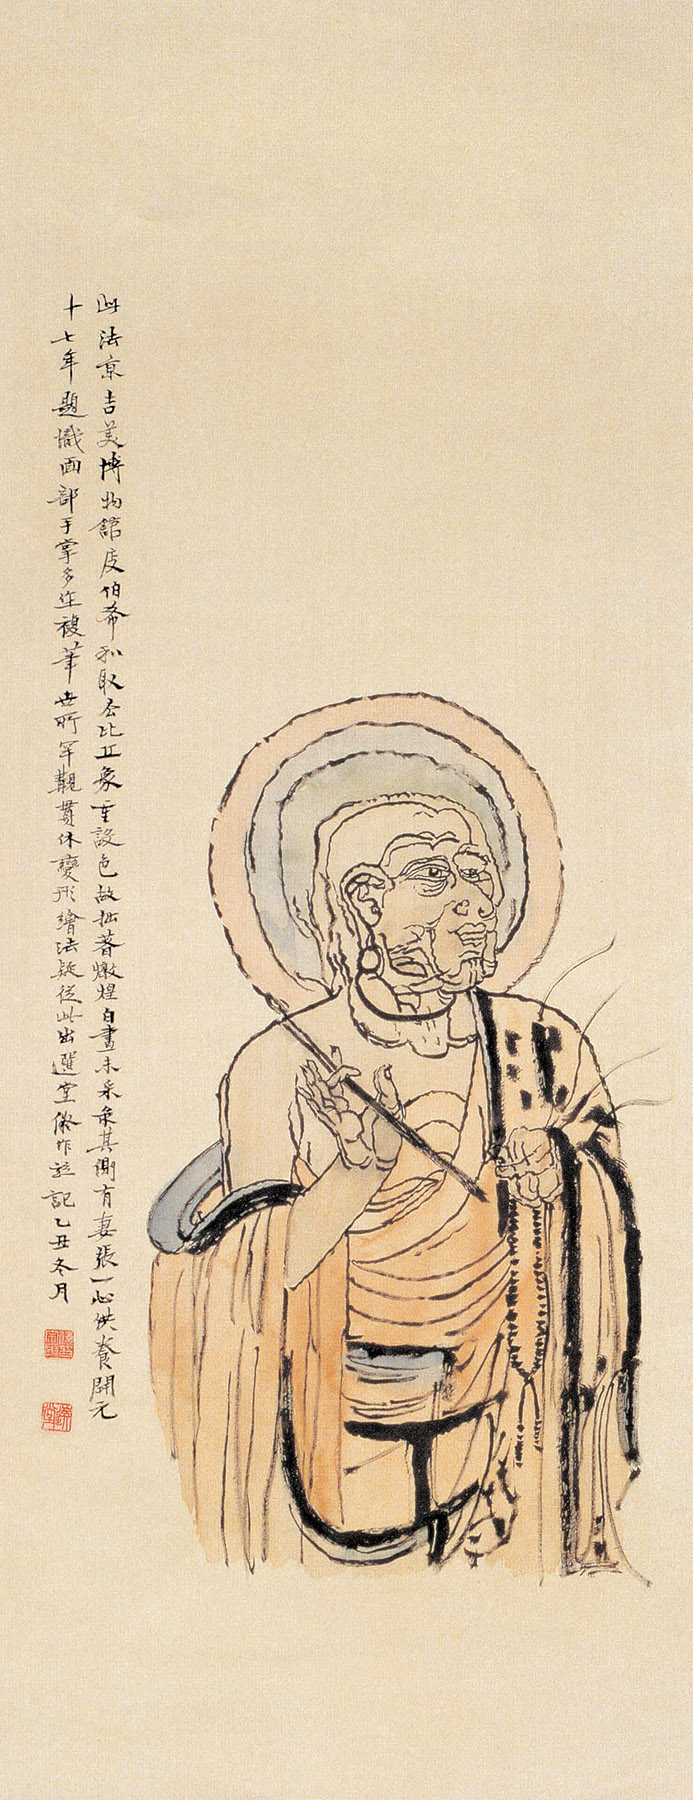 此法京吉美博物館庋伯希和取去比丘象重設色故拙著燉煌白畫未采彔其側有妻張一心供養開元
十七年題識面部手掌多作複筆世所罕觀貫休變形繪法疑從此出選堂倣作並記乙丑冬月